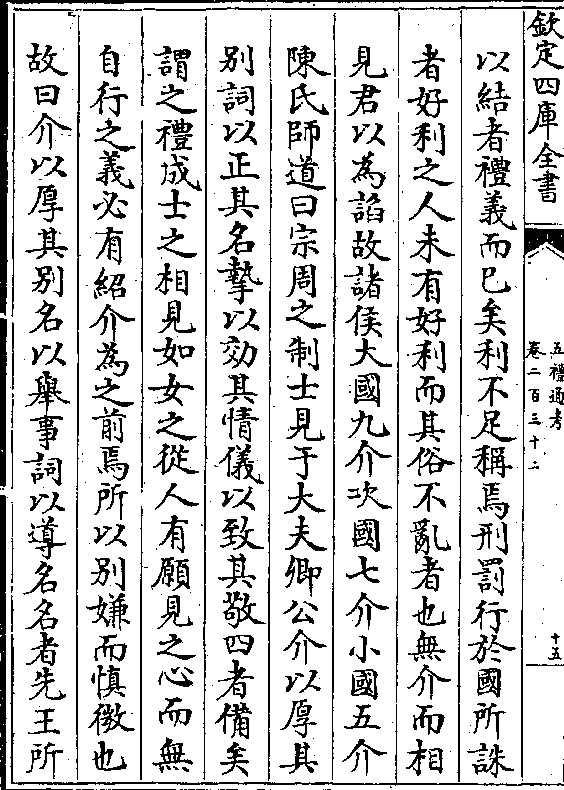 欽定四庫全書
五禮通考
卷二百三十二
十五
以結者禮義而已矣利不足稱焉刑罰行於國所誅
者好利之人未有好利而其俗不亂者也無介而相
見君以為諂故諸侯大國九介次國七介小國五介
陳氏師道曰宗周之制士見于大夫卿公介以厚其
别詞以正其名摯以効其情儀以致其敬四者備矣
謂之禮成士之相見如女之從人有願見之心而無
自行之義必有紹介為之前焉所以别嫌而慎微也
故曰介以厚其别名以舉事詞以導名名者先王所